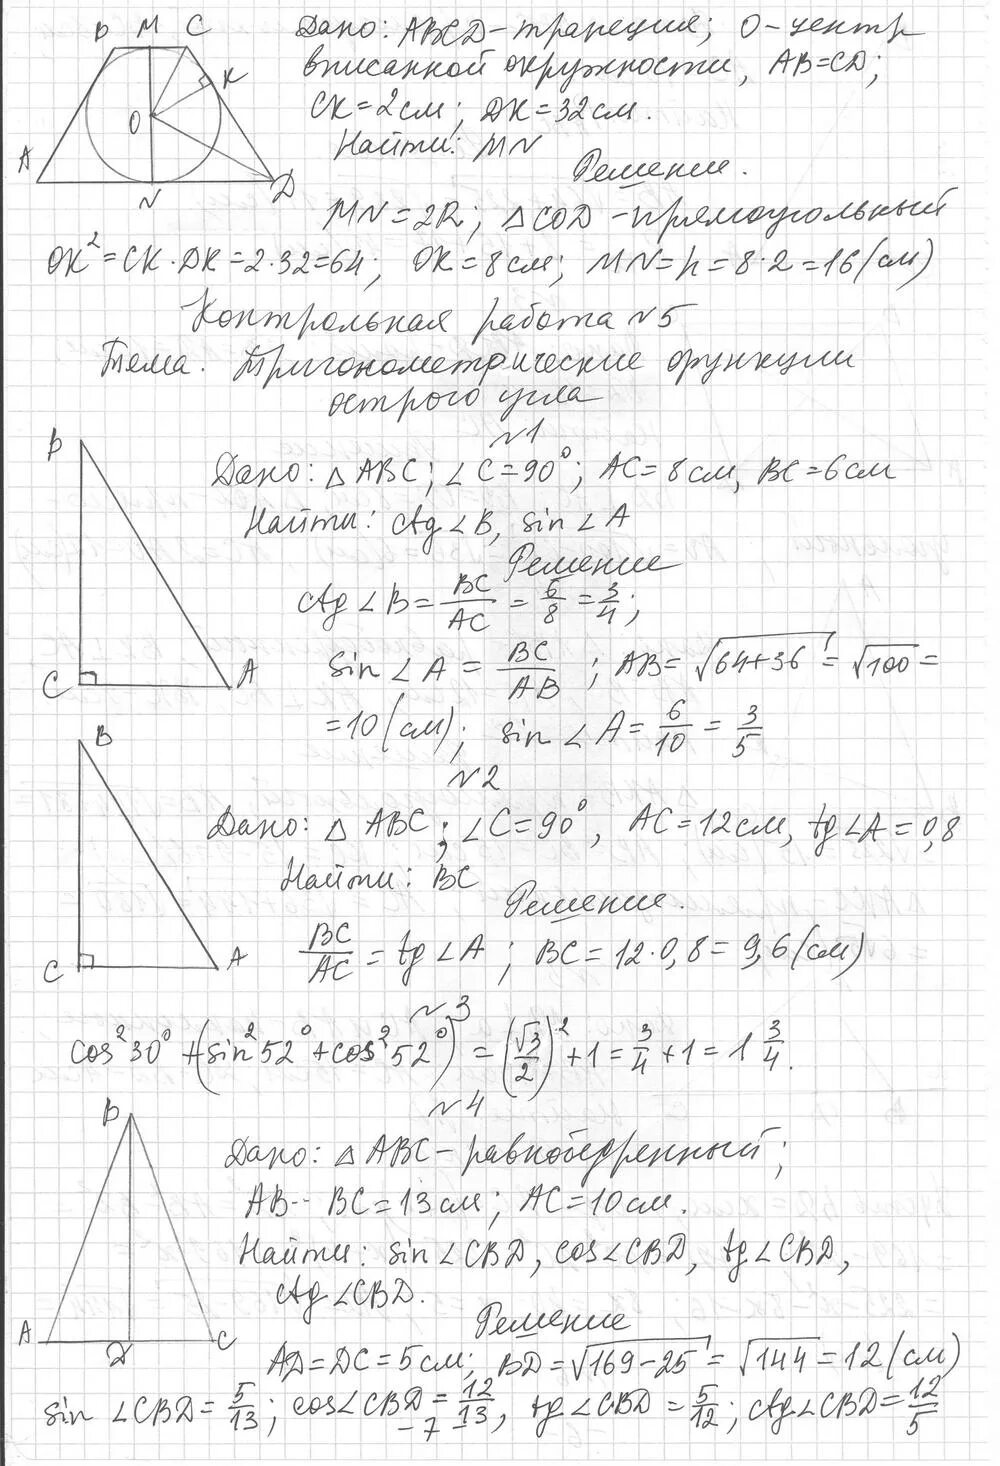 B M C K O A N D
Дано: ABCD-трапеция; O-центр
вписанной окружности, AB=CD;
CK=2см; DK=32см.
Найти: MN
Решение.
MN=2R; △COD-прямоугольный
OK²=CK·DK=2·32=64; OK=8см; MN=h=8·2=16(см)
Контрольная работа №5
Тема. Тригонометрические функции
острого угла
№1
B C A
Дано: △ABC; ∠C=90°; AC=8см, BC=6см
Найти: ctg∠B, sin∠A
Решение
ctg∠B=BC/AC=6/8=3/4;
sin∠A=BC/AB; AB=√64+36=√100=
=10(см); sin∠A=6/10=3/5
№2
B C A
Дано: △ABC; ∠C=90°, AC=12см, tg∠A=0,8
Найти: BC
Решение.
BC/AC=tg∠A; BC=12·0,8=9,6(см)
№3
cos²30°+(sin²52°+cos²52°)=(√3/2)²+1=3/4+1=1 3/4.
№4
B A D C
Дано: △ABC-равнобедренный;
AB-- BC=13см; AC=10см.
Найти: sin∠CBD, cos∠CBD, tg∠CBD,
ctg∠CBD.
Решение
AD=DC=5см; BD=√169-25=√144=12(см)
sin∠CBD=5/13; cos∠CBD=12/13, tg∠CBD=5/12; ctg∠CBD=12/5
-7-